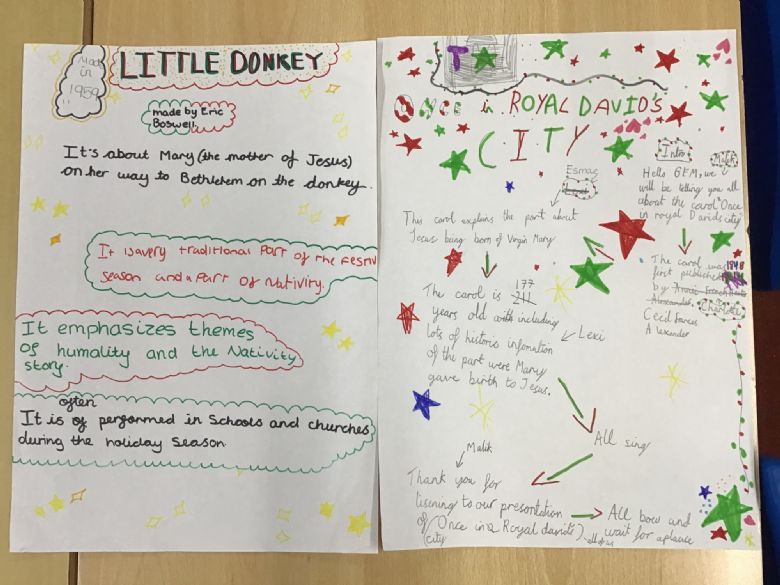 Made
in
1959
LITTLE DONKEY
made by Eric
Boswell.
It's about Mary (the mother of Jesus)
on her way to Bethlehem on the donkey.
It is a very traditional Part of the Festiv
season and a Part of Nativity.
It emphasizes themes
of humality and the Nativity
story.
often
It is of performed in Schools and churches
during the holiday Season.
ONCE in ROYAL DAVID'S
CITY
Intro
Malik
Hello 6FM, we
will be telling you all
about the carol "Once
in royal Davids city"
The carol was 1848
first published
by
Charlotte
Cecil frances
Alexander
Esmae
This carol explains the part about
Jesus being born of Virgin Mary
177
The carol is 211
years old with including
lots of historic infomation
of the part were Mary
gave birth to Jesus.
Lexi
All sing
Malik
Thank you for
listening to our presentation
of (Once in a Royal david's)
city
All bow and
wait for aplauce